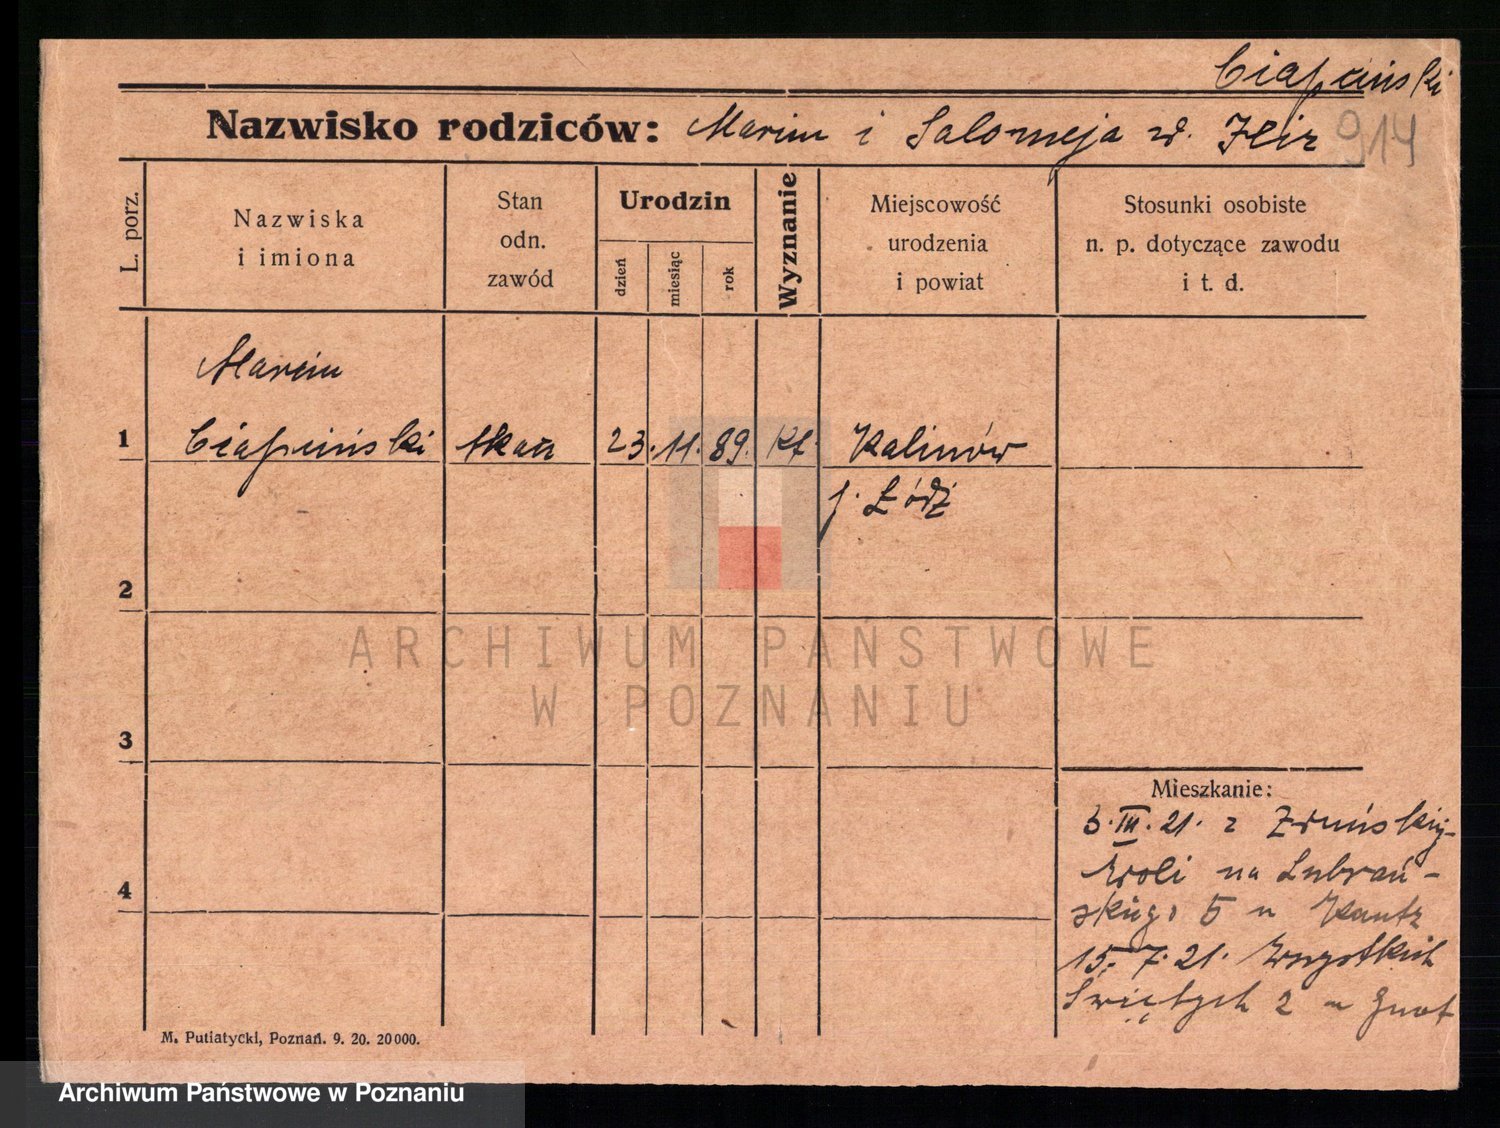 Ciapciński
Nazwisko rodziców: Marcin i Salomeja zd. 914
L. porz.
Nazwiska
i imiona
Stan
odn.
zawód
Urodzin
dzień
miesiąc
rok
Wyznanie
Miejscowość
urodzenia
i powiat
Stosunki osobiste
n. p. dotyczące zawodu
i t. d.
Marcin
1 Ciapciński tkacz 23. 11. 89. Kt. Kalinów
p. Łódź
2
3
4
Mieszkanie:
3. III. 21. z Zduńskiej-
Woli na Lubrań-
skiego 5 u Kantz
15. 7. 21. Wszystkich
Świętych 2 u
M. Putiatycki, Poznań. 9. 20. 20000.
ARCHIWUM PAŃSTWOWE
W POZNANIU
Archiwum Państwowe w Poznaniu